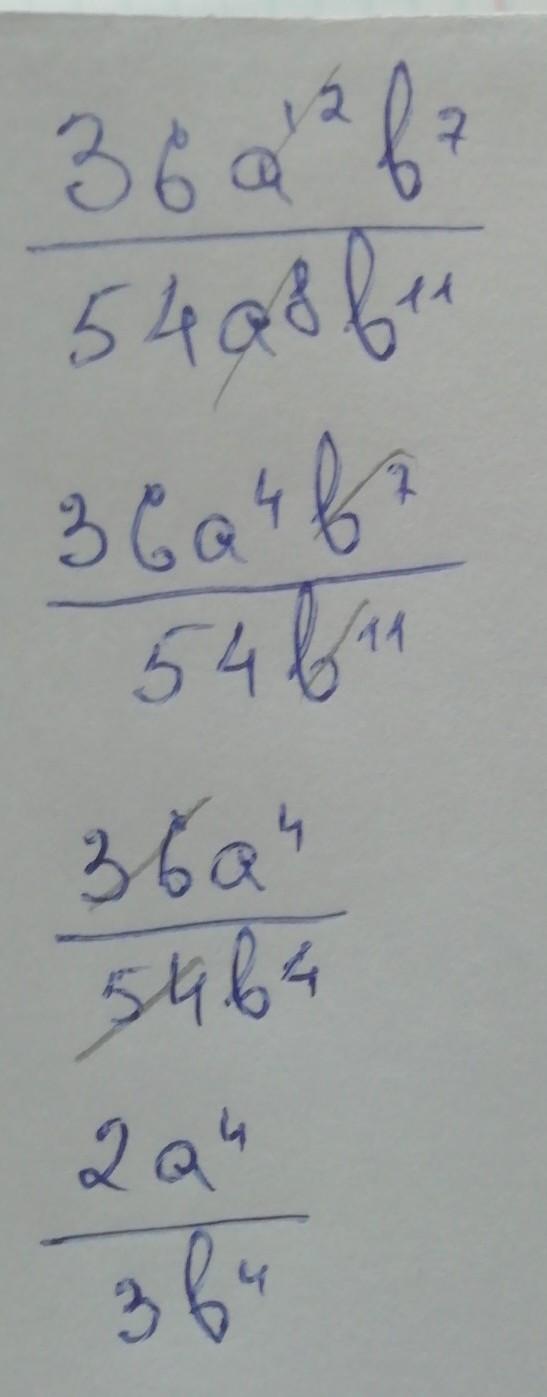 36a¹²b⁷
54a⁸b¹¹
36a⁴b⁷
54b¹¹
36a⁴
54b⁴
2a⁴
3b⁴